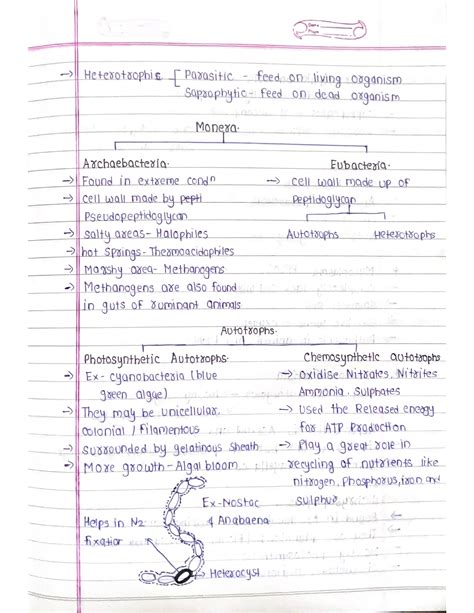 → Heterotrophic [ Parasitic - feed on living organism
Saprophytic - feed on dead organism
Monera
Archaebacteria.
→ Found in extreme condⁿ
→ cell wall made by pepti
Pseudopeptidoglycan
→ salty areas - Halophiles
→ hot Springs - Thermoacidophiles
→ Marshy area - Methanogens
→ Methanogens are also found
in guts of ruminant animals
Eubacteria.
→ cell wall made up of
Peptidoglycan
Autotrophs Heterotrophs
Autotrophs.
Photosynthetic Autotrophs.
→ Ex - cyanobacteria (blue
green algae)
→ They may be unicellular,
colonial / Filamentous
→ Surrounded by gelatinous sheath
→ More growth - Algal bloom
Chemosynthetic autotrophs
→ Oxidise Nitrates, Nitrites
Ammonia, Sulphates
→ Used the Released energy
for ATP Production
→ Play a great role in
recycling of nutrients like
nitrogen, Phosphorus, iron and
sulphur
Ex - Nostoc
& Anabaena
Helps in N₂
fixation
→ Heterocyst